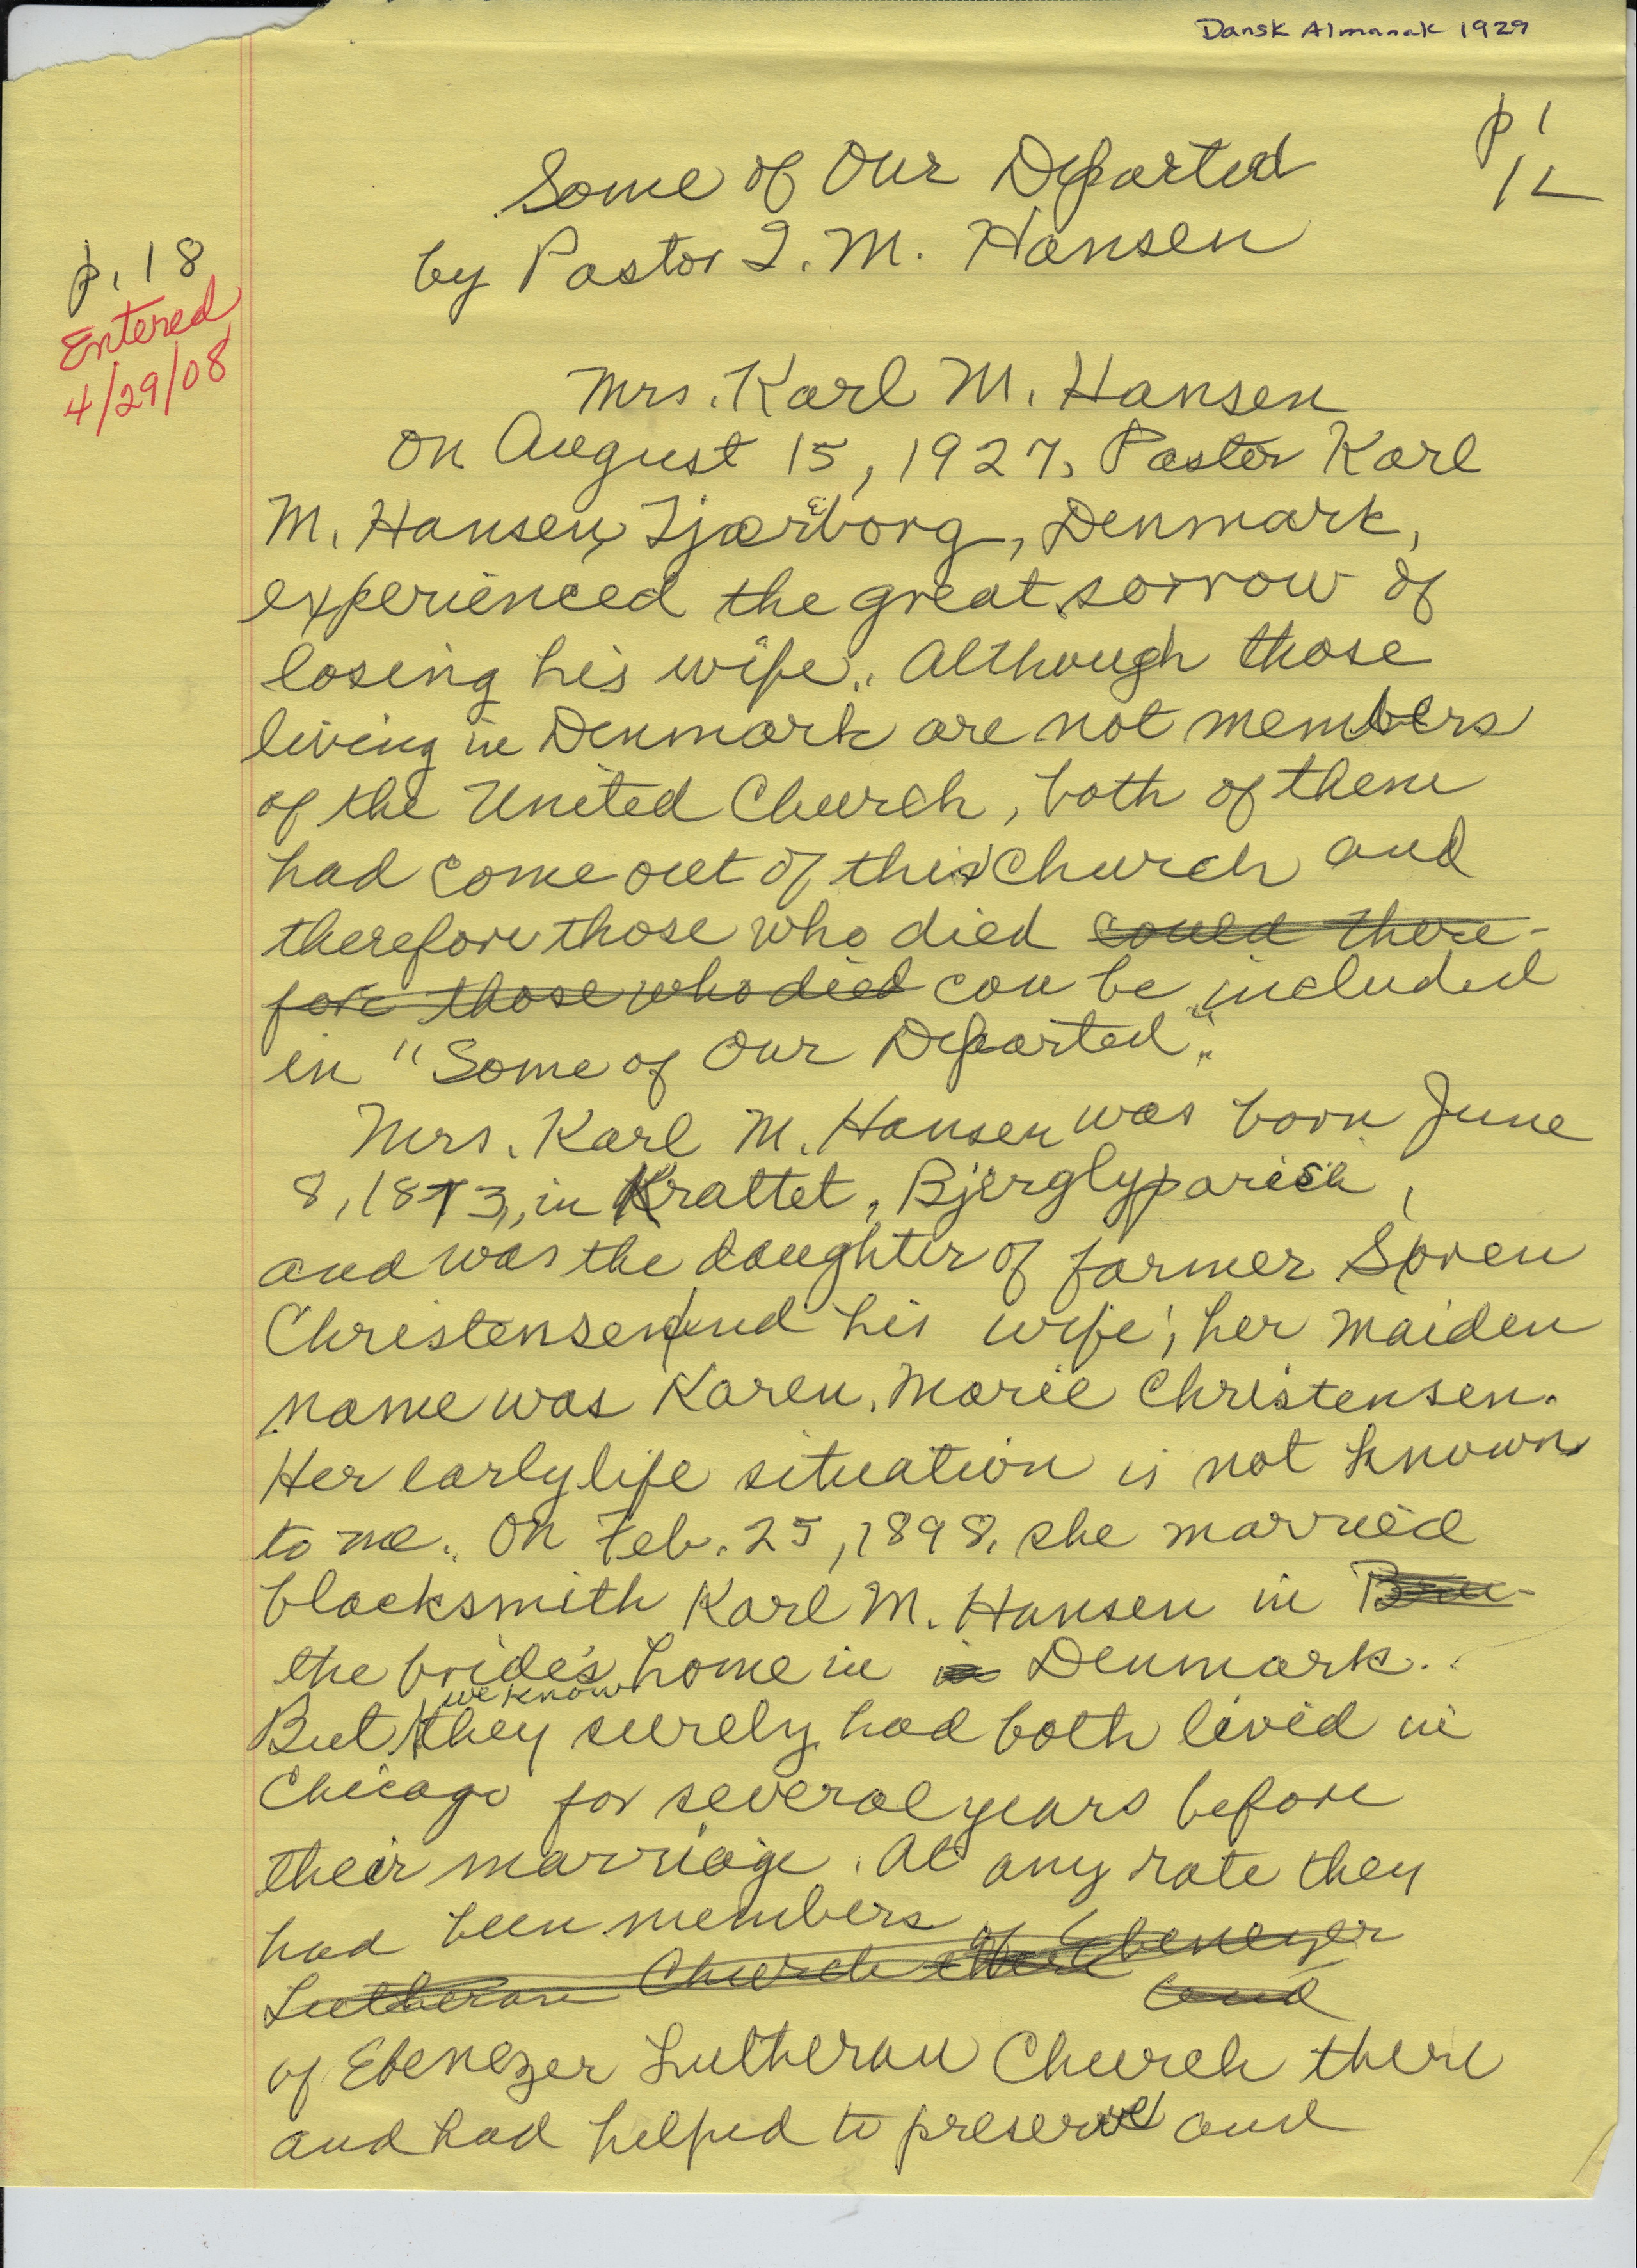 Dansk Almanak 1929
p 1
12
Some of Our Departed
by Pastor I. M. Hansen
p. 18
Entered
4/29/08
Mrs. Karl M. Hansen
On August 15, 1927, Pastor Karl
M. Hansen, Tjæreborg, Denmark,
experienced the great sorrow of
losing his wife. Although those
living in Denmark are not members
of the United Church, both of them
had come out of this Church and
therefore those who died could there-
fore those who died can be included
in "Some of Our Departed".
Mrs. Karl M. Hansen was born June
8, 1873, in Krattet, Bjergby parish,
and was the daughter of farmer Søren
Christensen and his wife; her maiden
name was Karen Marie Christensen.
Her early life situation is not known
to me. On Feb. 25, 1898, she married
blacksmith Karl M. Hansen in
the bride's home in in Denmark.
we know
But they surely had both lived in
Chicago for several years before
their marriage. At any rate they
had been members of Ebenezer
Lutheran Church there and
of Ebenezer Lutheran Church there
and had helped to preserve and